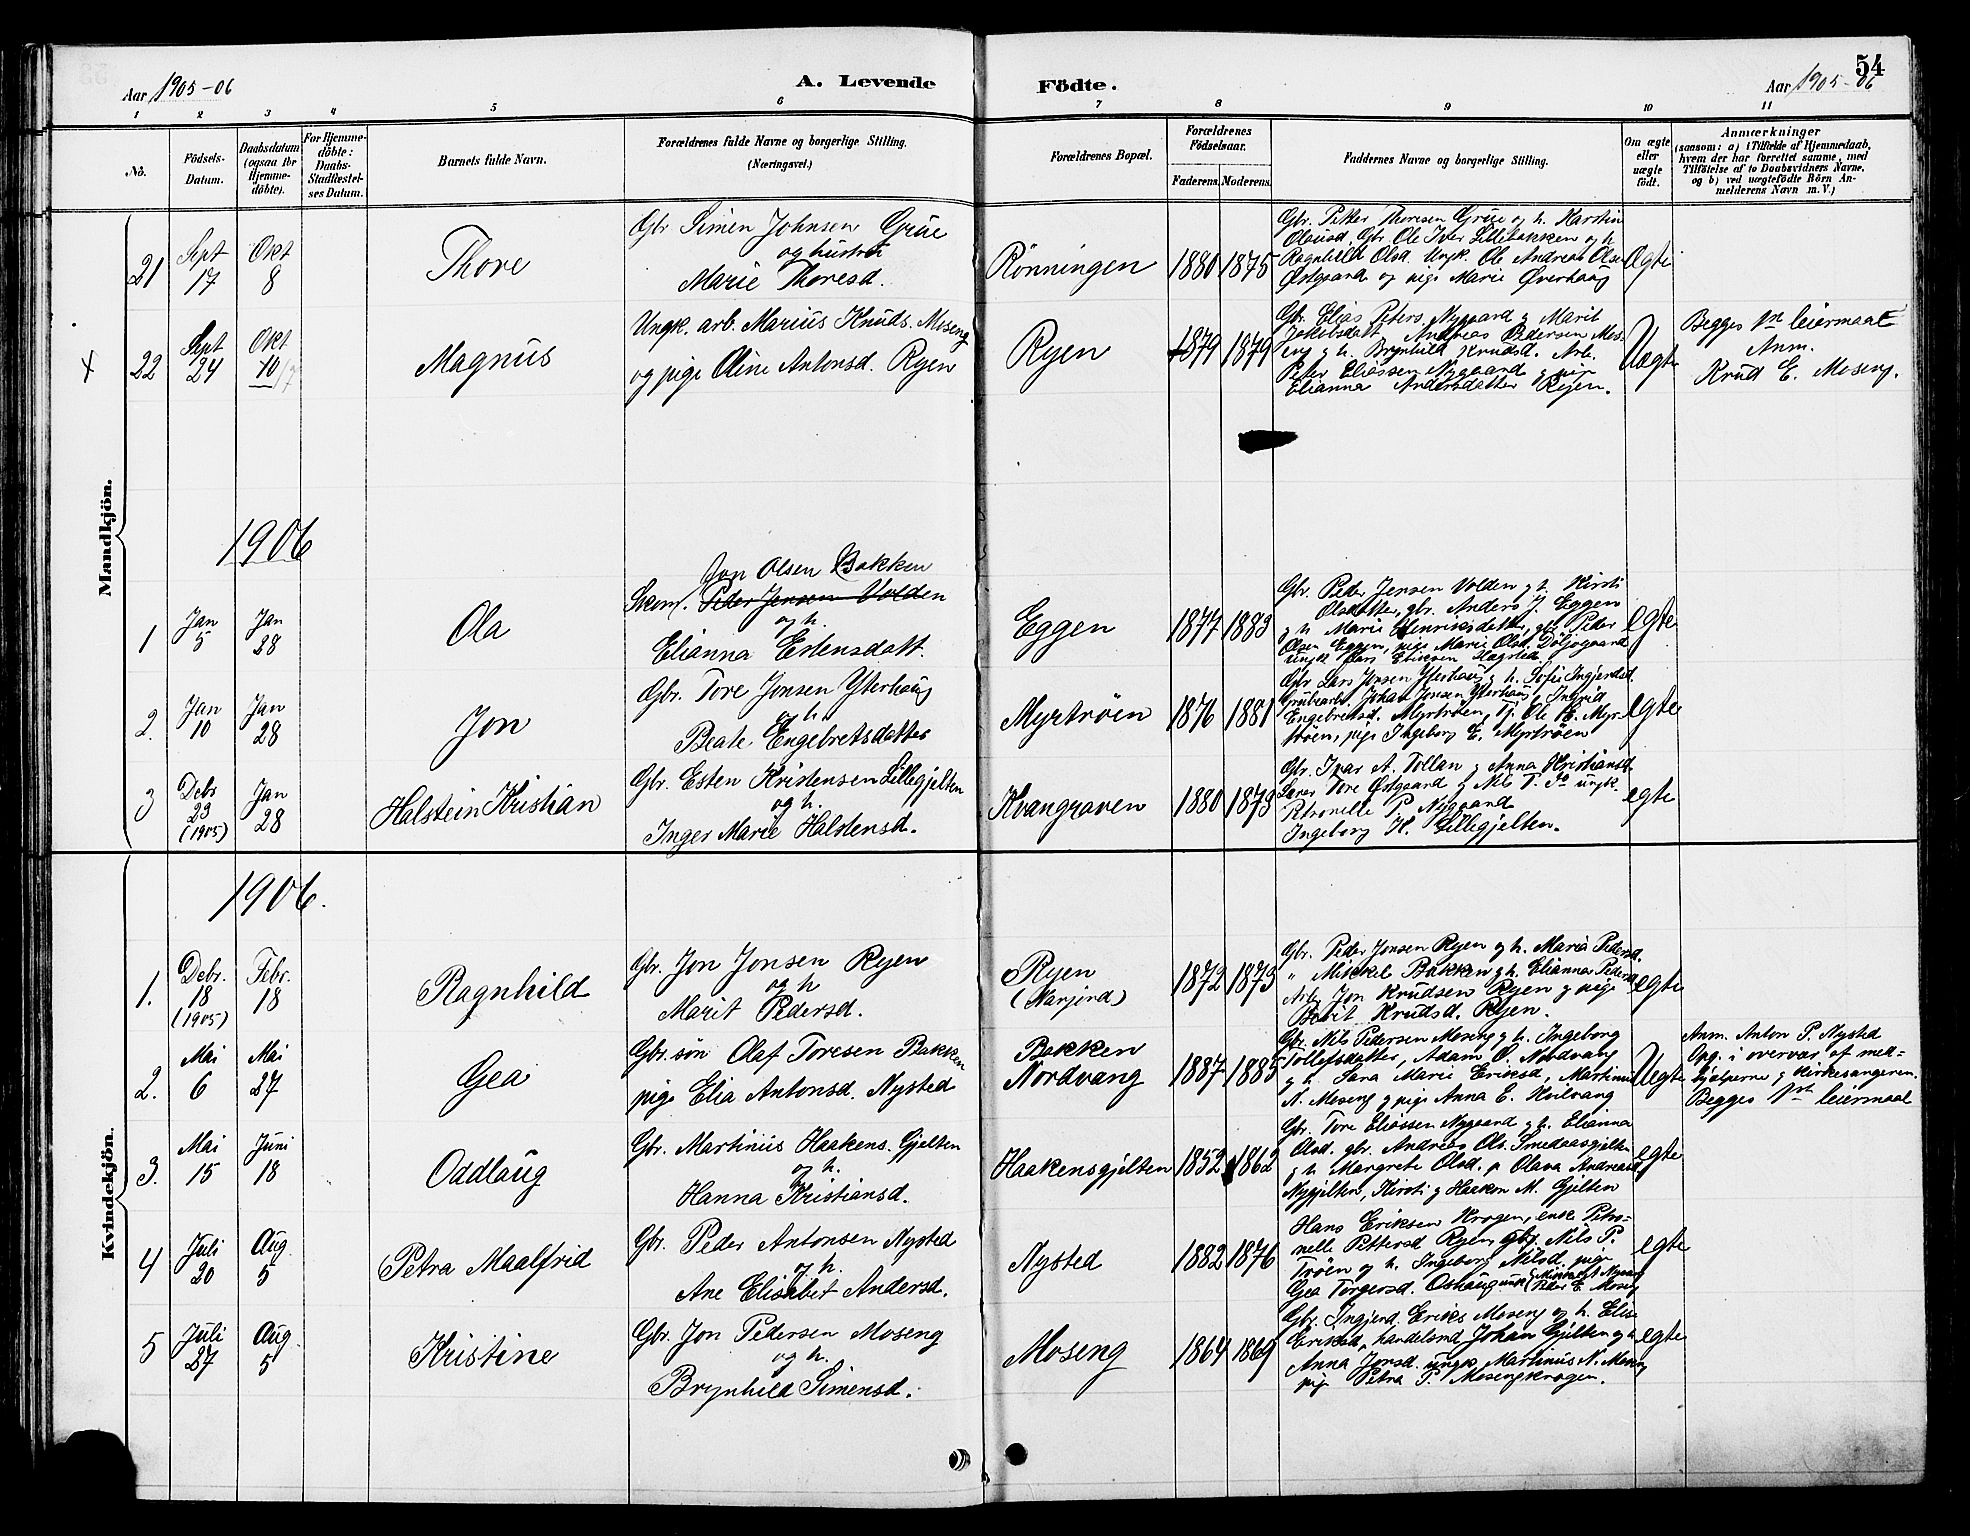 54
Aar 1905-06
A. Levende
Födte.
Aar 1905-06
1 2 3 4 5 6 7 8 9 10 11
No.
Födsels-Datum.
Daabsdatum (ogsaa for Hjemme-döbte).
For Hjemme-döbte: Daabs-Stadfæstelses Datum.
Barnets fulde Navn.
Forældrenes fulde Navne og borgerlige Stilling. (Næringsvei.)
Forældrenes Bopæl.
Forældrenes Födselsaar.
Faderens. Moderens.
Faddernes Navne og borgerlige Stilling.
Om ægte eller uægte födt.
Anmærkninger
(saasom: a) i Tilfælde af Hjemmedaab,
hvem der har forrettet samme, med
Tilföielse af to Daabsvidners Navne,
og b) ved uægtefödte Börn An-
melderens Navn m. V.)
Mandkjön.
21
Sept 17
Okt 8
Thore
Gbr Simen Johnsen Grue
og hustru
Marie Thoresd.
Rönningen
1880 1875
Gbr. Petter Thoresen Grue og h. Karstin
Olausd. Gbr. Ole Iver Lillebakken og h
Ragnhild Olsd. Ungk. Ole Andreas Olsen
Østgaard og pige Marie Øverhaug
Ægte
22
Sept 24
Okt 10/7
Magnus
Ungk. arb. Marius Knuds. Moseng
og pige Oline Antonsd. Ryen
Ryen
1879 1879
Gbr. Elias Peters. Nygaard g Marit
Jakobsdatt. Andreas Pedersen Mos-
eng g h. Brynhild Knudsd. Arb.
Peter Eliassen Nygaard g pige
Elianna Andersdatter Ryen.
Uægte
Begges 1ste leiermaal
Anm.
Knud E. Moseng.
1906
1
Jan 5
Jan 28
Ola
Jon Olsen Bakken
Skom. Peder Jensen Volden
og h.
Elianna Estensdatt.
Eggen
1877 1883
Gbr. Peder Jensen Volden g h. Kirsti
Olsdatter, gbr. Anders J. Eggen
g h Marie Henriksdatter, gbr. Peder
Olsen Eggen, pige Marie Olsd. Döljögaard
ungk Lars Eriksen Hagsted
egte
2.
Jan 10
Jan 28
Jon
Gbr. Tore Jonsen Ytterhaug
og h.
Beate Engebretsdatter
Myrtröen
1876 1881
Gbr Lars Jonsen Ytterhaug g h. Sofie Ingjerdsd.
Grubearb. Johan Jonsen Ytterhaug, Ingrid
Engebretsd. Myrtröen, Tj. Ole E. Myr-
tröen, pige Ingeborg E. Myrtröen
egte
3
Debr 23 (1905)
Jan 28
Halstein Kristian
Gbr. Esten Kristensen Lillegjelten
og h.
Inger Marie Halstensd.
Kvangraven
1880 1873
Gbr. Ivar A. Tollan g Anna Kristiansd.
Lærer Tore Østgaard g Nils T. do ungk.
Petronelle P. Nygaard
Ingeborg H. Lillegjelten.
egte
Kvindekjön.
1906.
1.
Debr. 18 (1905)
Febr. 18
Ragnhild
Gbr. Jon Jonsen Ryen
og h
Marit Pedersd.
Ryen
(Narjord)
1872 1873
Gbr. Peder Jonsen Ryen g h. Maria Pedersd.
" Mikkel Bakken g h. Elianna Pedersd
Arb. Jon Knudsen Ryen g pige
Berit Knudsd. Ryen.
egte
2.
Mai 6
Mai 27
Gea
Gbr.sön Olaf Toresen Bakken
pige Elia Antonsd. Nysted
Bakken
Nordvang
1887 1885
Gbr. Nils Pedersen Moseng g h. Ingeborg
Tollefsdatter, Adam O. Nordvang
g h. Sara Marie Eriksd, Martinus
N. Moseng g pige Anna E. Kvilvang
Uegte
Anm. Anton P. Nysted
Opg. i overvær af med-
hjælperne g kirkesangeren.
Begges 1ste leiermaal
3.
Mai 15
Juni 18
Oddlaug
Gbr. Martinus Haakens. Gjelten
og h.
Hanna Kristiansd.
Haakensgjelten
1852 1862
Gbr. Tore Eliassen Nygaard g h. Elianna
Olsd. gbr. Andreas Ols. Smedaasgjelten
g h. Margrete Olsd. p Olava Andreasd
Nygjelten, Kirsti g Haakon M. Gjelten
egte
4
Juli 20
Aug. 5
Petra Maalfrid
Gbr. Peder Antonsen Nysted
og h.
Ane Elisabet Andersd.
Nysted
1882 1876
Hans Eriksen Krogen, enke Petro-
nelle Pettersd Ryen, gbr. Nils P.
Tröen og h. Ingeborg Nilsd. pige
Gea Torgersd. Oshaug ungk Peder E. Moseng
egte
5
Juli 27
Aug. 5
Kristine
Gbr. Jon Pedersen Moseng
og h.
Brynhild Simensd.
Moseng
1864 1869
Gbr. Ingjerd. Eriks Moseng og h. Elise
Eriksd, handelsmd Johan Gjelten g h
Anna Jonsd. ungk. Martinus N. Moseng
pige Petra P. Mosengkrogen.
egte